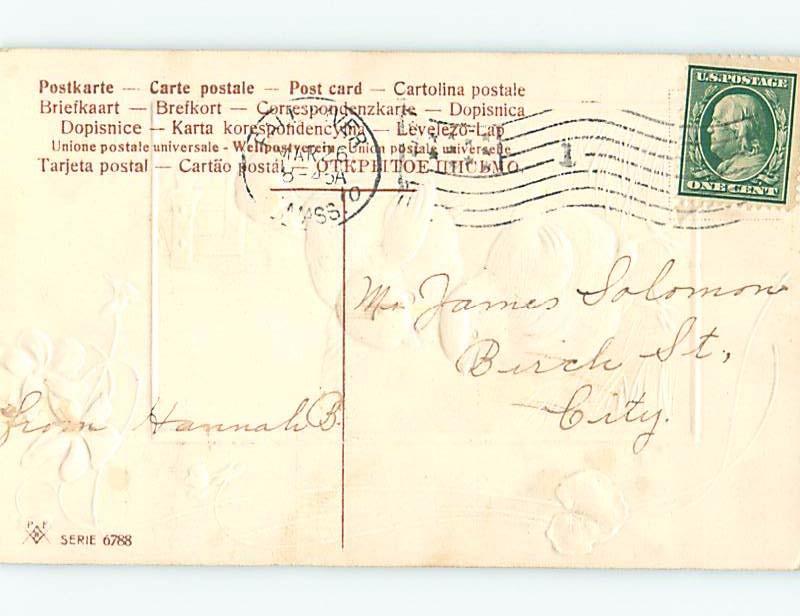 Postkarte — Carte postale — Post card — Cartolina postale
Briefkaart — Brefkort — Correspondenzkarte — Dopisnica
Dopisnice — Karta korespondencyjna — Levelező-Lap
Unione postale universale - Weltpostverein - Union postale universelle
Tarjeta postal — Cartão postal — ОТКРЫТОЕ ПИСЬМО.
U.S. POSTAGE
ONE CENT
MAR 26
8-45A
10
MASS.
1
Mr James Solomon
Birch St.,
City.
From Hannah B.
P F
SERIE 6788